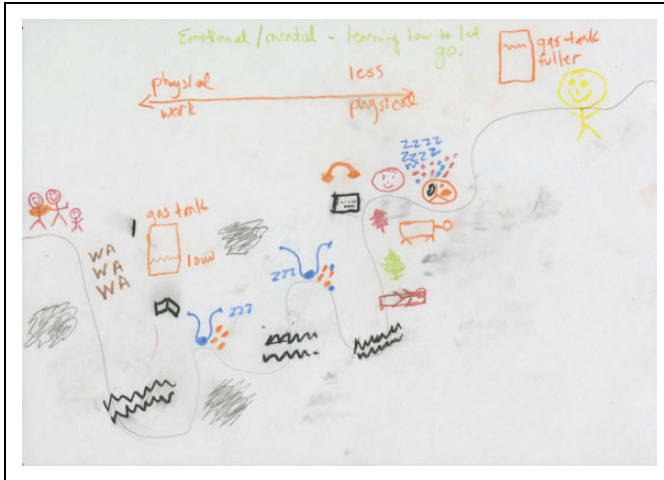 Emotional/mental - learning how to let
go.
gas tank
fuller
physical
work
less
physical
zzzz
zzzz
gas tank
low
WA
WA
WA
zzz
zzz